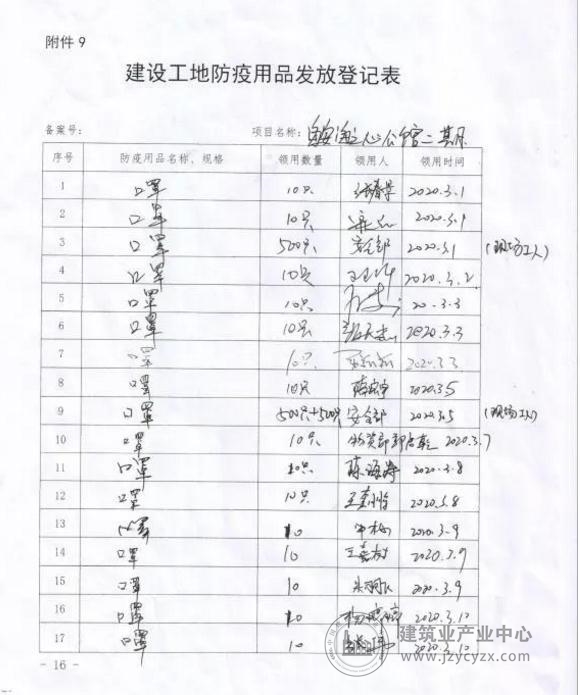 附件 9
建设工地防疫用品发放登记表
备案号： 项目名称： 公馆二期
序号 防疫用品名称、规格 领用数量 领用人 领用时间
1 口罩 10只 2020.3.1
2 口罩 10只 2020.3.1
3 口罩 500只 安全部 2020.3.1 (现场工人)
4 口罩 10只 2020.3.2
5 口罩 10只 20-3-3
6 口罩 10只 2020.3.3
7 口罩 10只 2020.3.3
8 口罩 10只 2020.3.5
9 口罩 500只+500只 安全部 2020.3.5 (现场工人)
10 口罩 10只 物资部 2020.3.7
11 口罩 10只 陈海涛 2020.3.8
12 口罩 10只 2020.3.8
13 口罩 10 2020.3.9
14 口罩 10 2020.3.9
15 口罩 10 2020.3.9
16 口罩 10 2020.3.10
17 口罩 10 2020.3.10
- 16 -
建筑业产业中心
www.jzycyzx.com